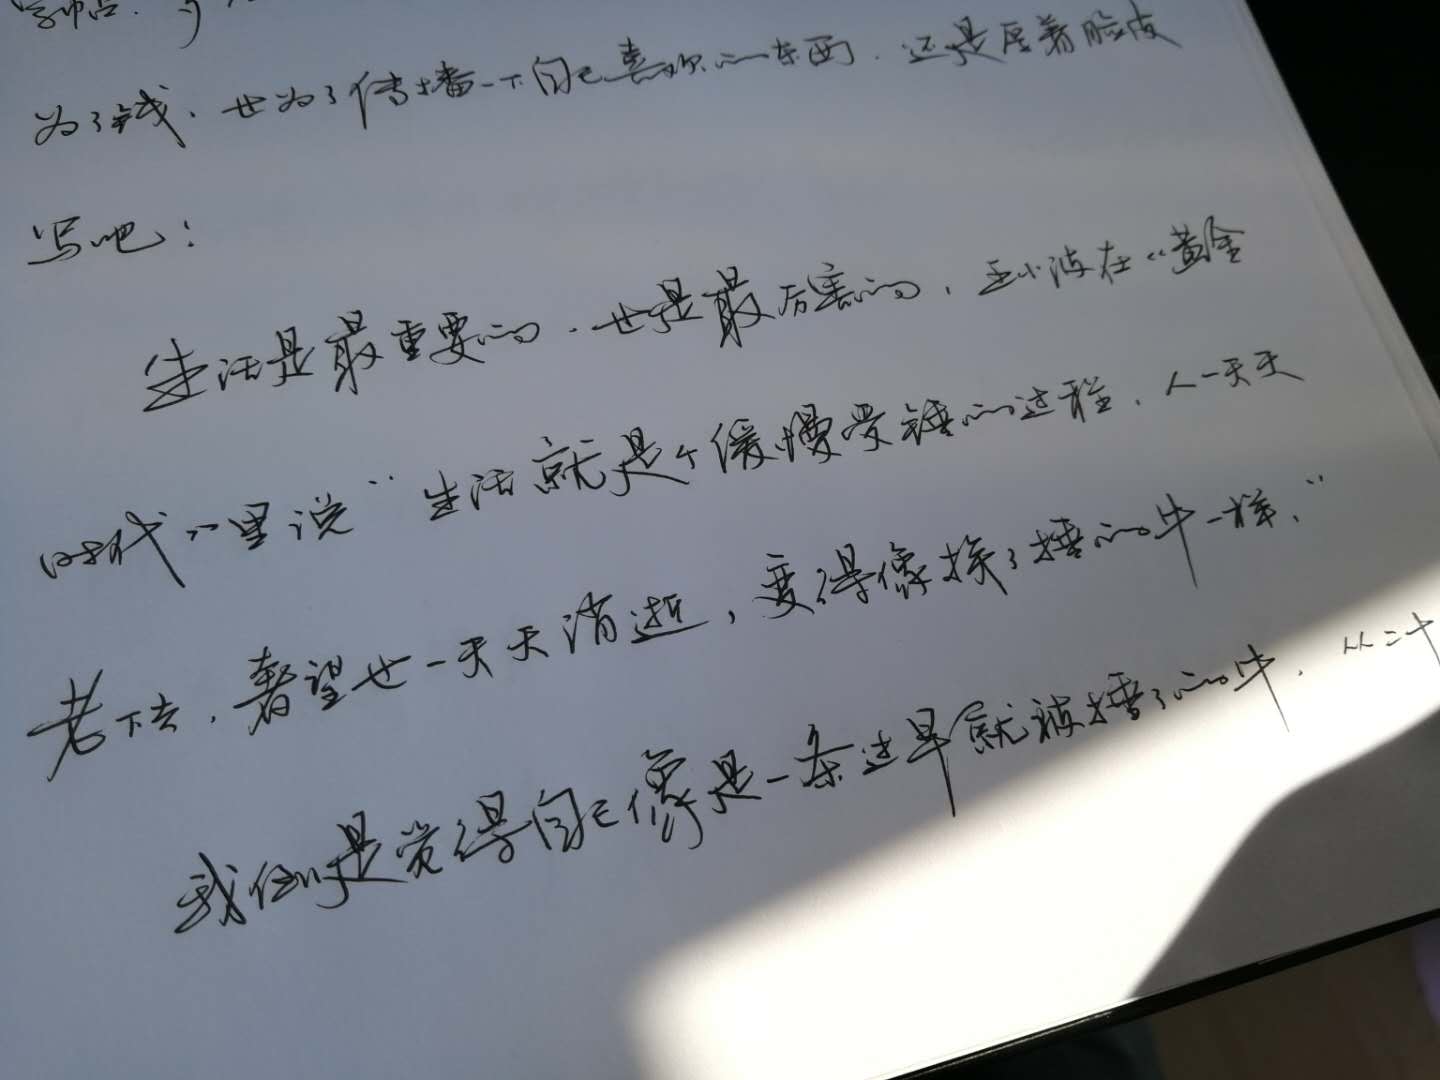 为了钱，也为了传播一下自己喜欢的东西，还是厚着脸皮
写吧：
生活是最重要的，也是最厉害的，王小波在《黄金
时代》里说“生活就是个缓慢受锤的过程，人一天天
老下去，奢望也一天天消逝，变得像挨了捶的牛一样，”
我倒是觉得自己像是一条过早就被捶了的牛，从二十